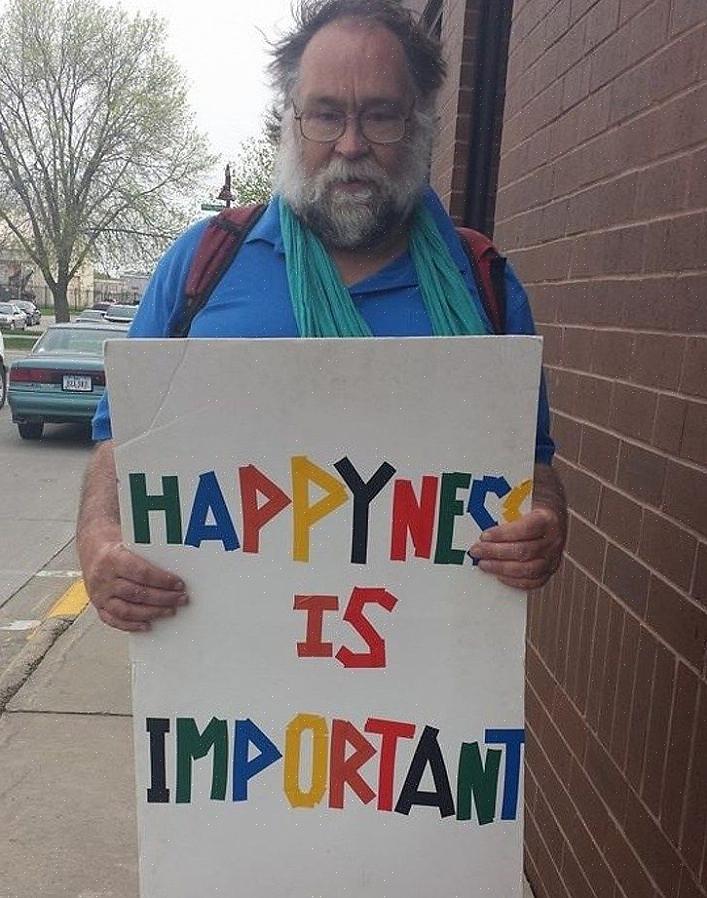 HAPPYNESS
IS
IMPORTANT